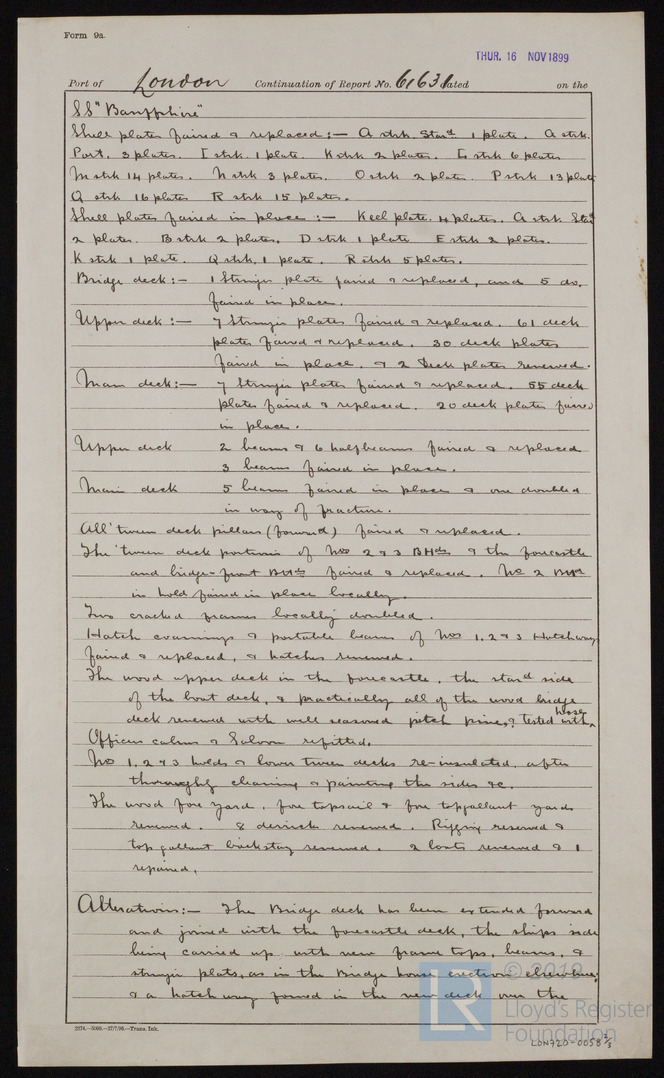 Form 9a.
THUR. 16 NOV 1899
Port of London Continuation of Report No. 61631 dated on the
SS "Banffshire"
Shell plates faired & replaced :— A strk. Starᵈ 1 plate. A strk.
Port. 3 plates. I strk. 1 plate. K strk 2 plates. L strk 6 plates
M strk 14 plates. N strk 3 plates. O strk 2 plates. P strk 13 plates
Q strk 16 plates R strk 15 plates.
Shell plates faired in place :— Keel plate. 4 plates. A strk Starᵈ
2 plates. B strk 2 plates. D strk 1 plate E strk 2 plates.
K strk 1 plate. Q strk. 1 plate. R strk 5 plates.
Bridge deck :— 1 Stringer plate faired & replaced, and 5 do.
faired in place.
Upper deck :— 7 Stringer plates faired & replaced. 61 deck
plates faired & replaced. 30 deck plates
faired in place. & 2 deck plates renewed.
Main deck :— 7 Stringer plates faired & replaced. 55 deck
plates faired & replaced. 20 deck plates faired
in place.
Upper deck 2 beams & 6 half beams faired & replaced
3 beams faired in place.
Main deck 5 beams faired in place & one doubled
in way of fracture.
All 'tween deck pillars (forward) faired & replaced.
The 'tween deck portions of Nos 2 & 3 BHds & the forecastle
and bridge-front BHds faired & replaced. No 2 BHd
in hold faired in place locally.
Two cracked frames locally doubled.
Hatch coamings & portable beams of Nos 1. 2 & 3 Hatchways
faired & replaced, & hatches renewed.
The wood upper deck in the forecastle, the starᵈ side
of the boat deck, & practically all of the wood bridge
deck renewed with well seasoned pitch pine, & tested with hose.
Officers cabins & Saloon refitted.
Nos 1. 2 & 3 holds & lower tween decks re-insulated. after
thoroughly cleaning & painting the sides &c.
The wood fore yard, fore topsail & fore topgallant yards
renewed. 8 derricks renewed. Rigging &
top gallant backstay renewed. 2 boats renewed & 1
repaired.
Alterations :— The Bridge deck has been extended forward
and joined with the forecastle deck, the ships side
being carried up with new frame tops, beams, &
stringer plates, as in the Bridge house erection elsewhere;
& a hatchway formed in the new deck over the
2174.—5000.—27/7/98.—Trans. Ink.
© 2019
LR
Lloyd's Register
Foundation
LON720-0058 2/3